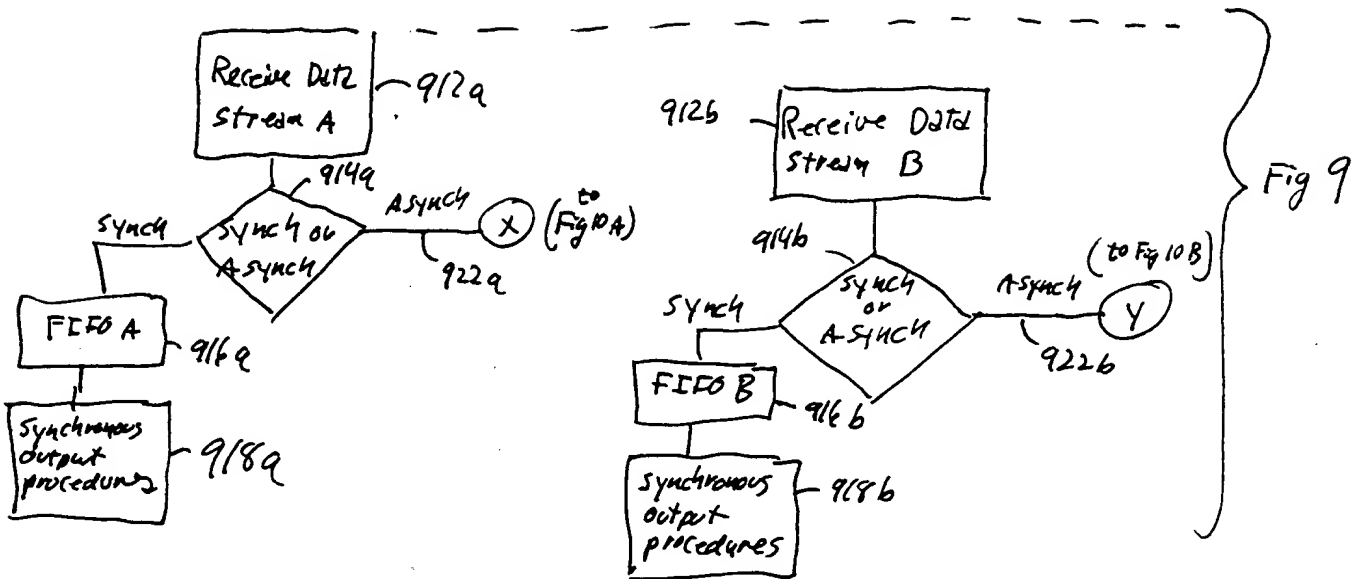 Receive Data
Stream A
912a
914a
Synch or
Asynch
Synch
Asynch
922a
X
(to
Fig 10A)
FIFO A
916a
Synchronous
output
procedures
918a
912b
Receive Data
Stream B
914b
Synch
or
Asynch
Synch
Asynch
922b
(to Fig 10B)
Y
FIFO B
916b
Synchronous
output
procedures
918b
Fig 9